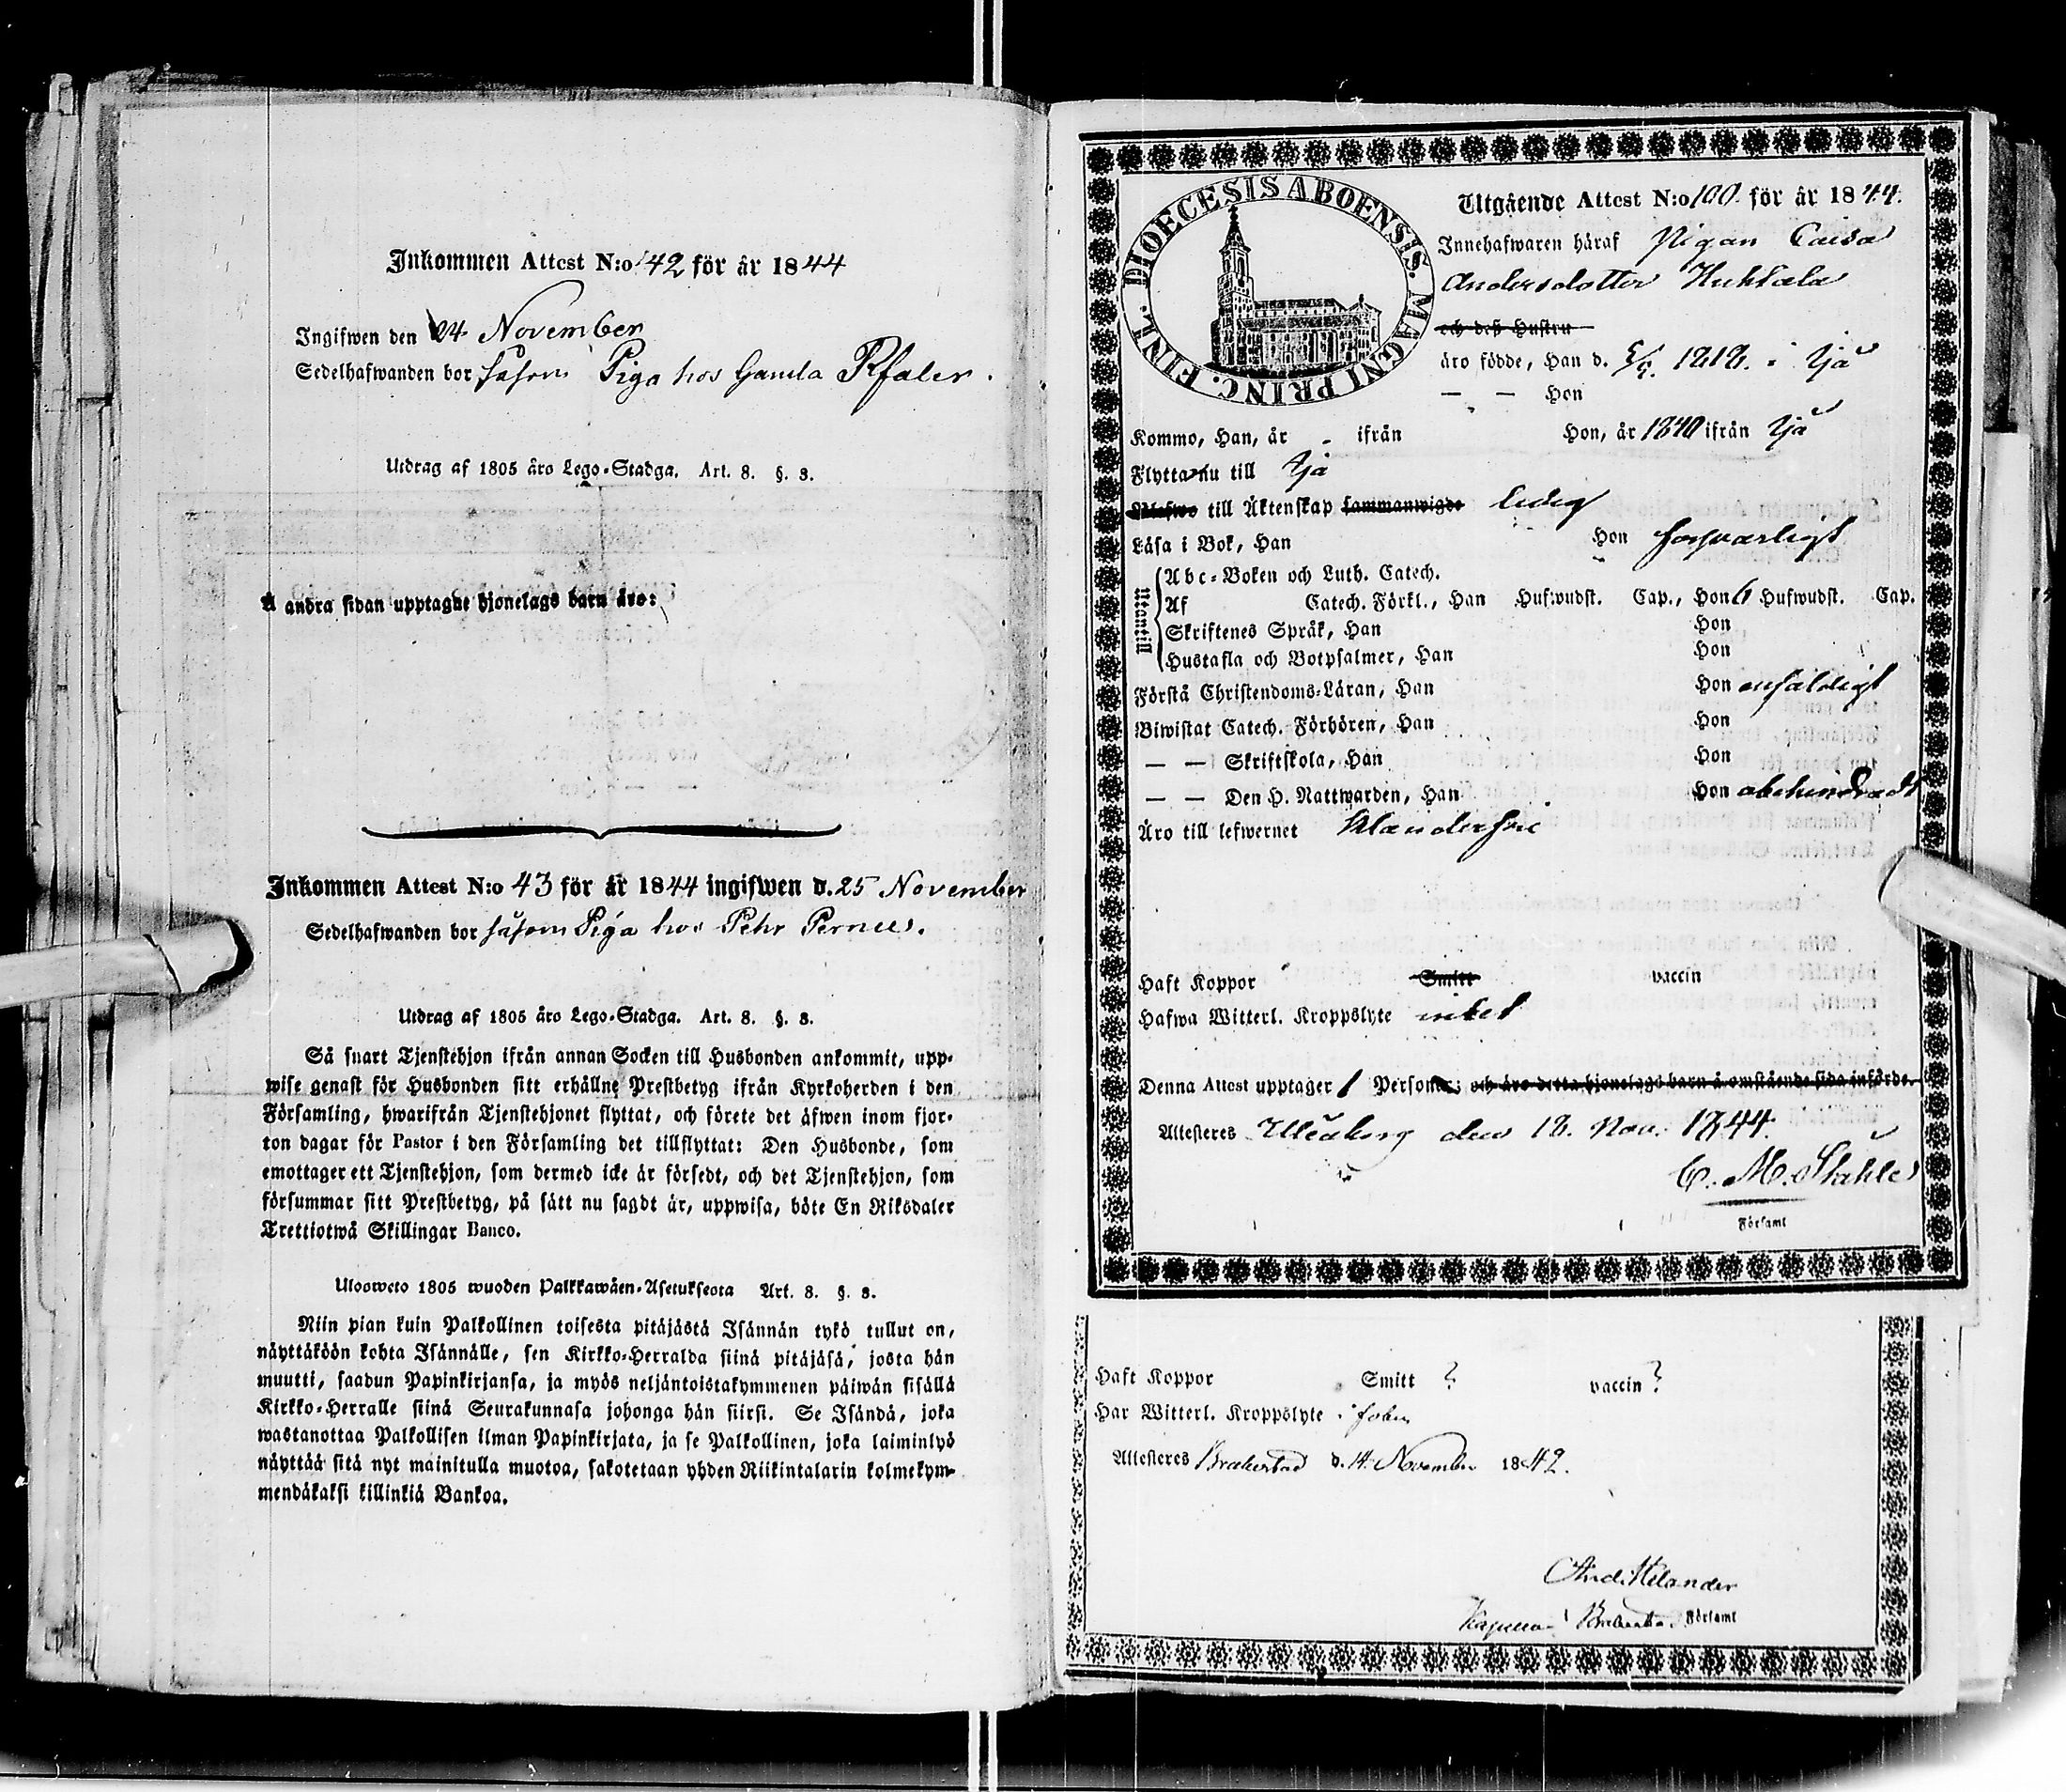 Inkommen Attest N:o 42 för år 1844
Ingifwen den 24 November
Sedelhafwanden bor såsom Piga hos Gamla Pfaler.
Utdrag af 1805 åro Lego-Stadga. Art. 8. §. 3.
Å andra sidan upptagne hjonelags barn äro:
Inkommen Attest N:o 43 för år 1844 ingifwen d. 25 November
Sedelhafwanden bor såsom Piga hos Pehr Pernu.
Utdrag af 1805 åro Lego-Stadga. Art. 8. §. 3.
Så snart Tjenstehjon ifrån annan Socken till Husbonden ankommit, upp-
wise genast för Husbonden sitt erhållne Prestbetyg ifrån Kyrkoherden i den
Församling, hwarifrån Tjenstehjonet flyttat, och förete det äfwen inom fjor-
ton dagar för Pastor i den Församling det tillflyttat: Den Husbonde, som
emottager ett Tjenstehjon, som dermed icke är försedt, och det Tjenstehjon, som
försummar sitt Prestbetyg, på sätt nu sagdt är, uppwisa, böte En Riksdaler
Trettiotwå Skillingar Banco.
Ulosweto 1805 wuoden Palkkawäen-Asetuksesta Art. 8. §. 3.
Niin pian kuin Palkollinen toisesta pitäjästä Isännän tykö tullut on,
näyttäköön kohta Isännälle, sen Kirkko-Herralda siinä pitäjäsä, josta hän
muutti, saadun Papinkirjansa, ja myös neljäntoistakymmenen päiwän sisällä
Kirkko-Herralle siinä Seurakunnasa johonga hän siirsi. Se Isändä, joka
wastanottaa Palkollisen ilman Papinkirjata, ja se Palkollinen, joka laiminlyö
näyttää sitä nyt mainitulla muotoa, sakotetaan yhden Riikintalarin kolmekym-
mendäkaksi killinkiä Bankoa.
DIOECESIS ABOENSIS. MAGNI PRINC. FINL.
Utgående Attest N:o 100. för år 1844.
Innehafwaren häraf Pigan Caisa
Andersdotter Huhtala
och deß Hustru
äro födde, Han d. 5/9. 1818. i Ijå
— — Hon
Kommo, Han, år - ifrån Hon, år 1840 ifrån Ijå
Flytta nu till Ijå
till Äktenskap sammanwigde ledig
Läsa i Bok, Han Hon förswarligt
Utantill
Abc-Boken och Luth. Catech.
Af Catech. Förkl., Han Hufwudst. Cap., Hon 6 Hufwudst. Cap.
Skriftenes Språk, Han Hon
Hustafla och Botpsalmer, Han Hon
Förstå Christendoms-Läran, Han Hon enfaldigt
Biwistat Catech. Förhören, Han Hon
— — Skriftskola, Han Hon
— — Den H. Nattwarden, Han Hon obehindradt
Äro till lefwernet klanderfri
Haft Koppor Smitt vaccin
Hafwa Witterl. Kroppslyte intet
Denna Attest upptager 1 Person; och äro detta hjonelags barn å omstående sida införde.
Attesteres Uleåborg den 18. Nov. 1844.
C. M. Ståhle
Församl
Haft Koppor Smitt ? vaccin ?
Har Witterl. Kroppslyte
Attesteres Brahestad d. 14 November 1842.
And. Helander
Brahestad Församl